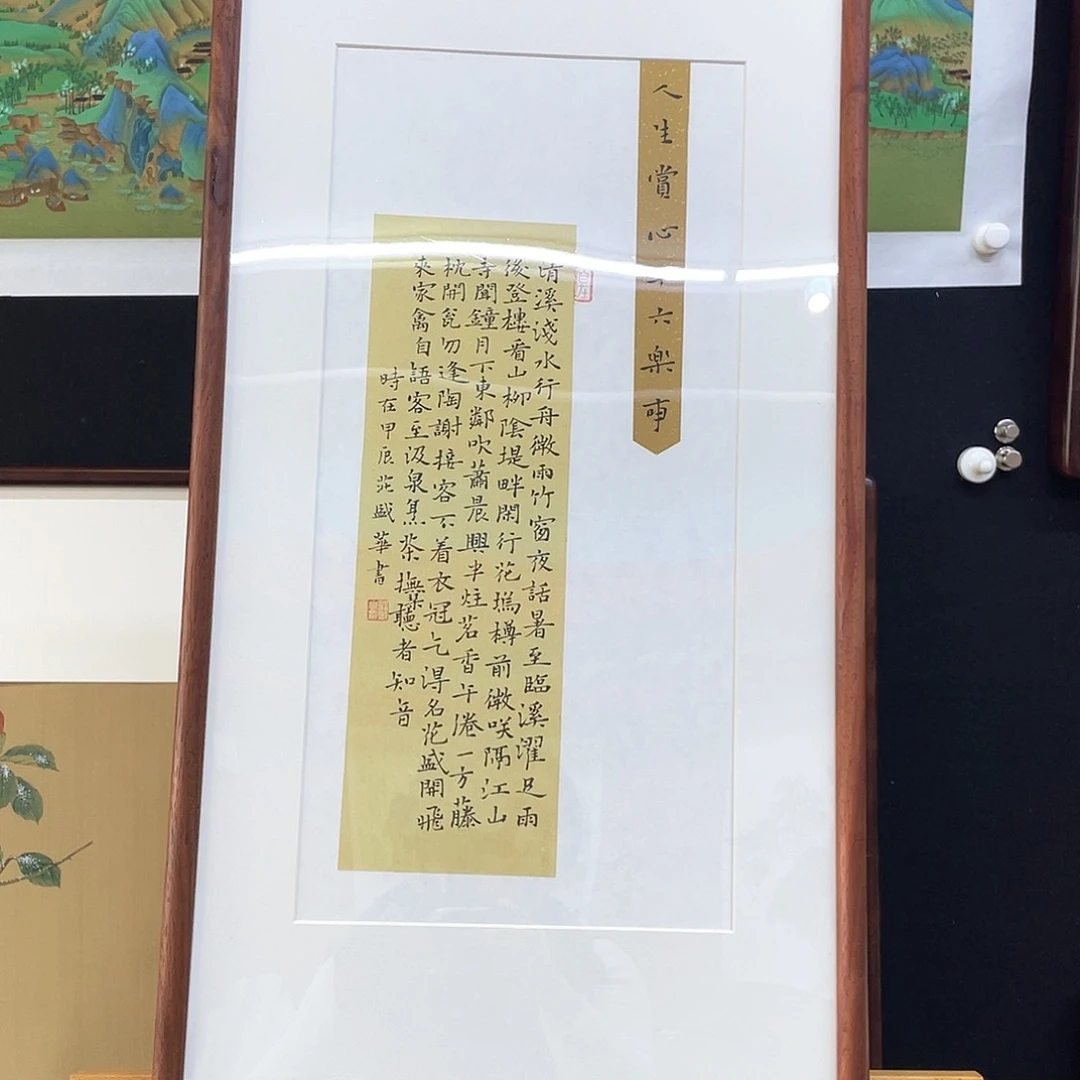 人生賞心十六樂事
清溪淺水行舟微雨竹窗夜話暑至臨溪濯足雨
後登樓看山柳陰堤畔閑行花塢樽前微笑隔江山
寺聞鐘月下東鄰吹蕭晨興半炷茗香午倦一方藤
枕開瓮勿逢陶謝接客不着衣冠乞得名花盛開飛
來家禽自語客至汲泉烹茶撫琴聽者知音
時在甲辰范盛華書